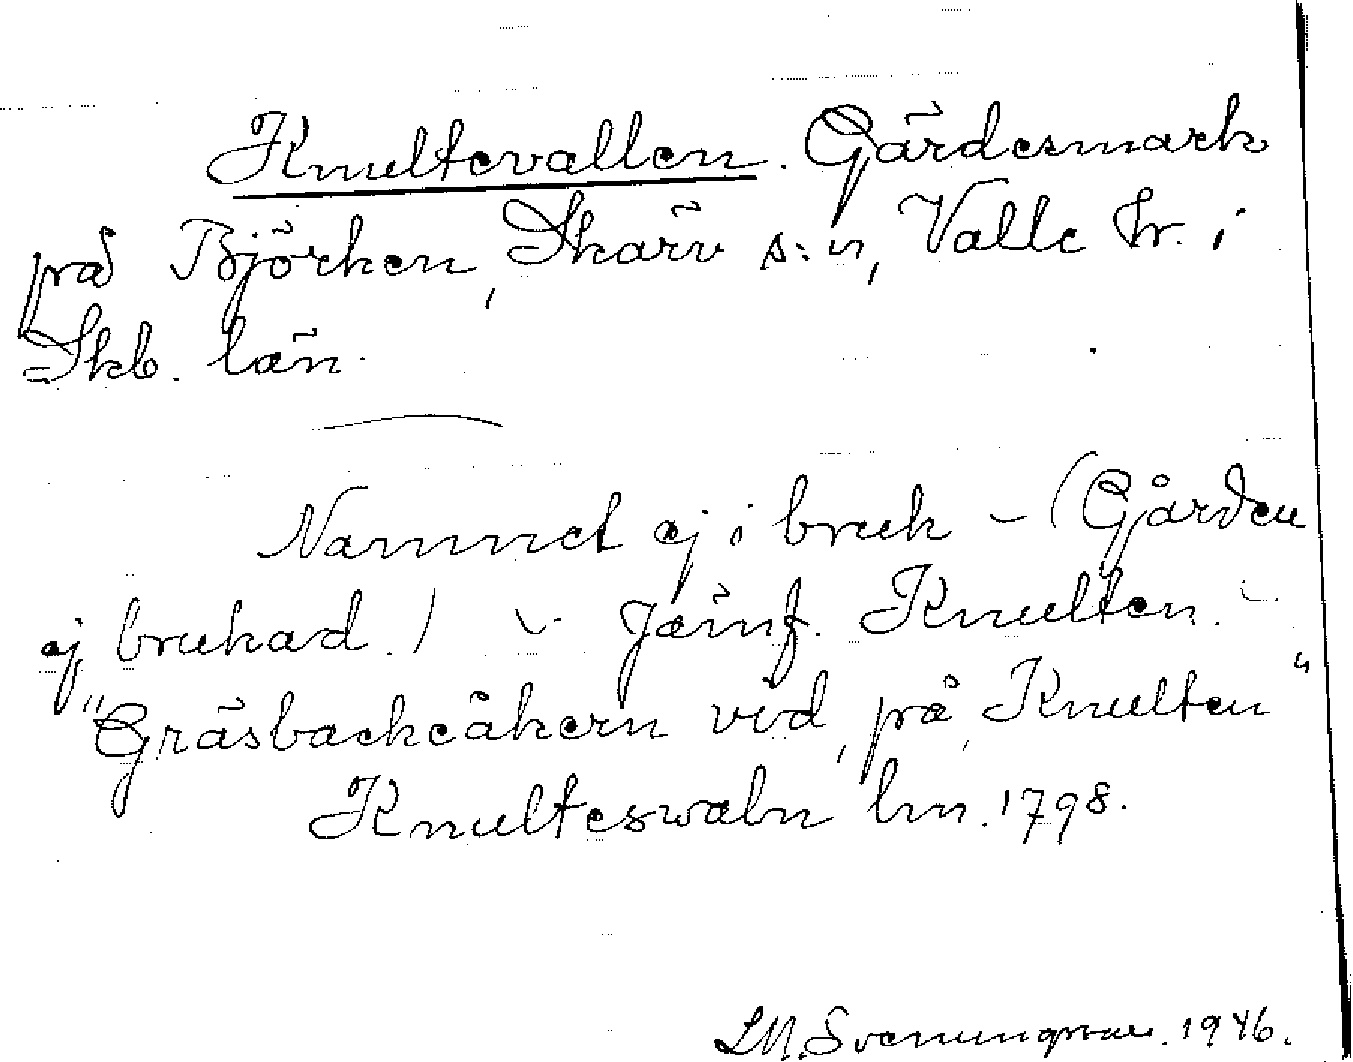 Knultevallen. Gärdesmark
på Björken, Skärv s:n, Valle hr. i
Skb. län.
Namnet ej i bruk – (Gården
ej brukad.) – Jämf. Knulten. –
"Gräsbackeåkern vid, på, Knulten"
Knulteswaln lm. 1798.
LM. Svenungsson. 1946.